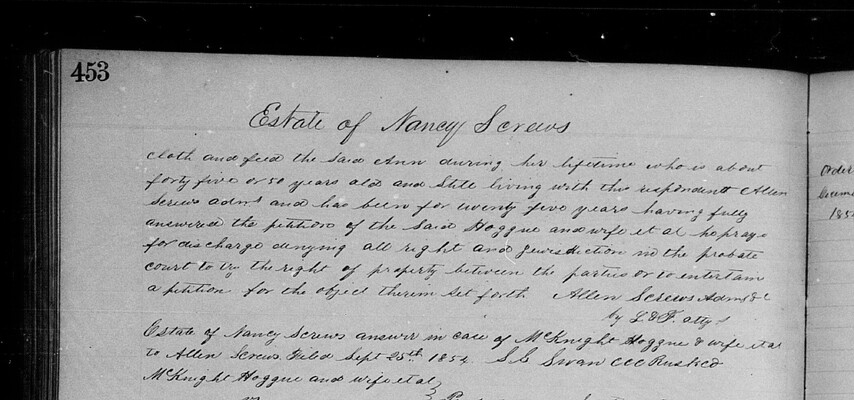 453
Estate of Nancy Screws
cloth and feed the said Ann during her lifetime who is about
forty five or 50 years old and Still living with this respondent Allen
Screws admr and has been for twenty five years having fully
answered the petition of the said Hoggue and wife et al he prays
for discharge denying all right and Jurisdiction in the probate
court to try the right of property between the parties or to entertain
a petition for the object therein Set forth Allen Screws Admr &c
by L & F. attys
Estate of Nancy Screws answer in case of McKnight Hoggue & wife et al
to Allen Screws Filed Sept 25th 1854 S C Swan CCC Rusk Co
McKnight Hoggue and wife et al
Order
Decem
185